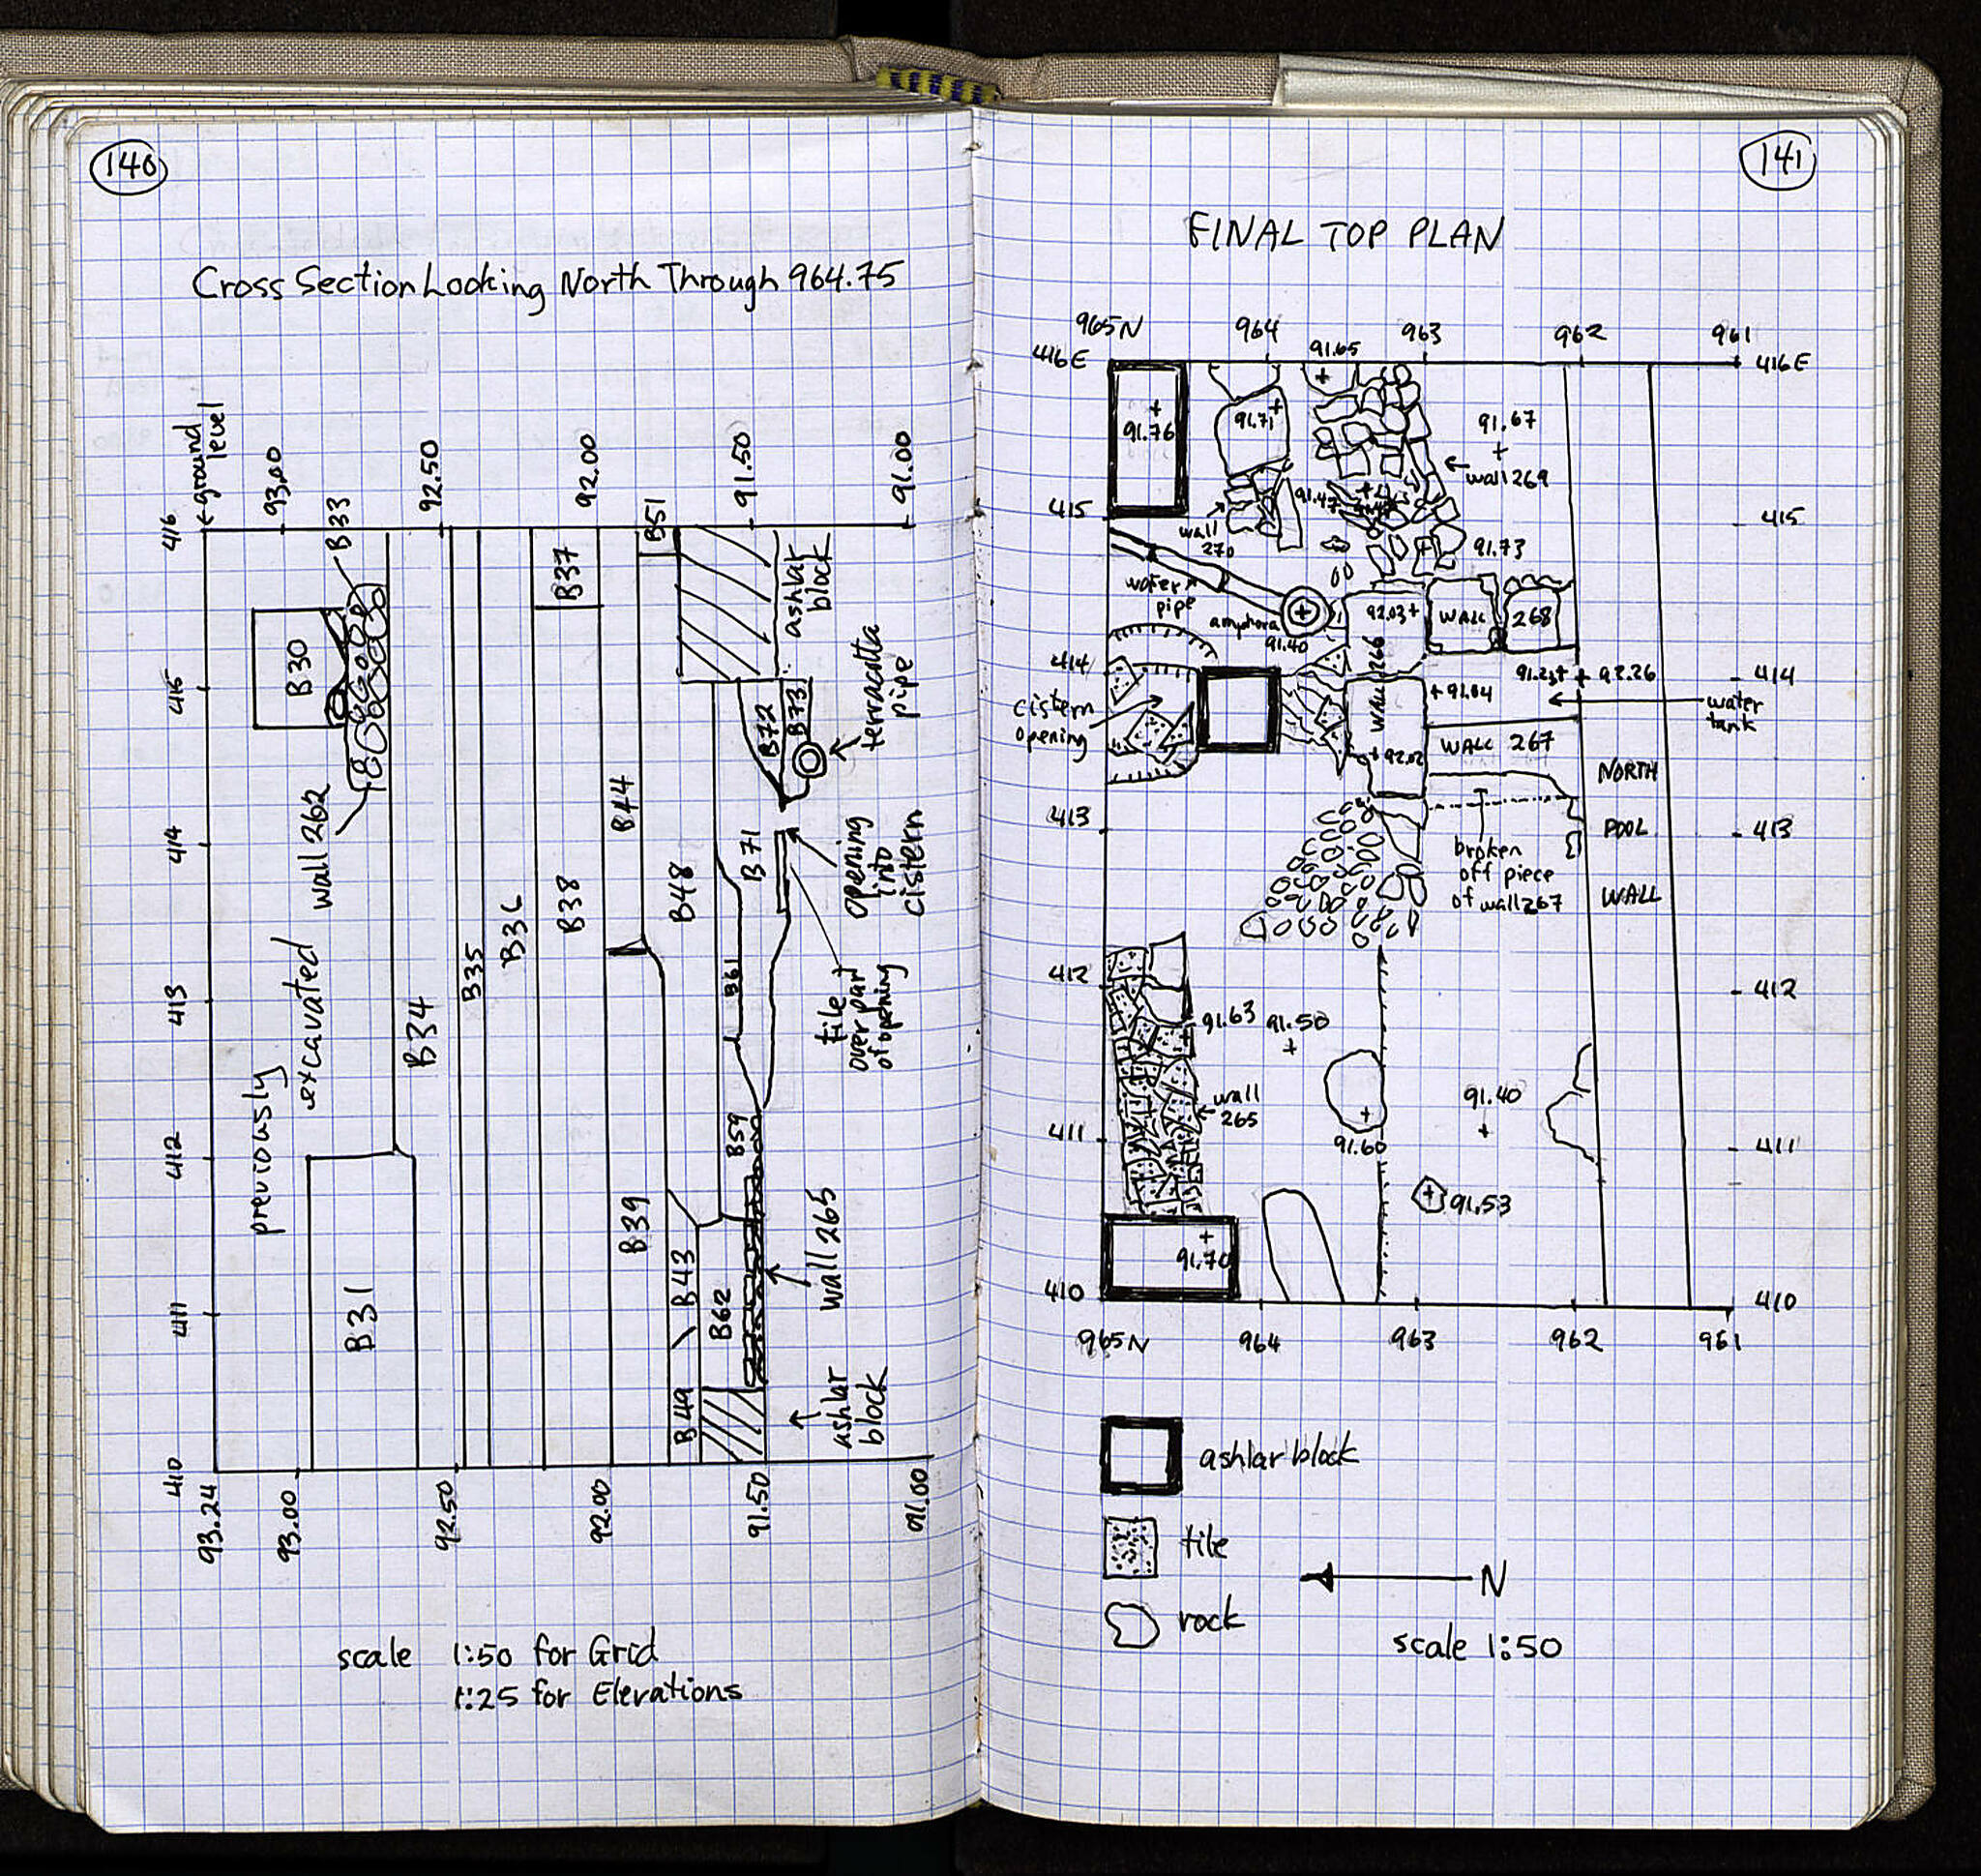 140
Cross Section Looking North Through 964.75
416
←ground level
93.00
B33
92.50
92.00
B51
91.50
91.00
B37
ashlar block
B30
415
B72
B73
terracotta pipe
wall 262
B44
414
B48
B71
opening into cistern
previously excavated
B34
B35
B36
B38
413
B61
tile over part of opening
412
B59
B39
wall 265
B31
411
B43
B62
B49
ashlar block
410
93.24
93.00
92.50
92.00
91.50
91.00
scale 1:50 for Grid
1:25 for Elevations
141
FINAL TOP PLAN
965N 964 963 962 961
416E
91.65
416E
91.76
91.71
91.67
wall 269
415
91.47
415
wall 270
91.73
water pipe
amphora
91.40
92.03
WALL 268
WALL 266
414
91.23
92.26
414
91.84
water tank
cistern opening
92.02
WALL 267
NORTH POOL WALL
413
413
broken off piece of wall 267
412
412
91.63
91.50
91.40
wall 265
411
91.60
411
91.53
91.70
410
410
965N 964 963 962 961
ashlar block
tile
N
rock
scale 1:50